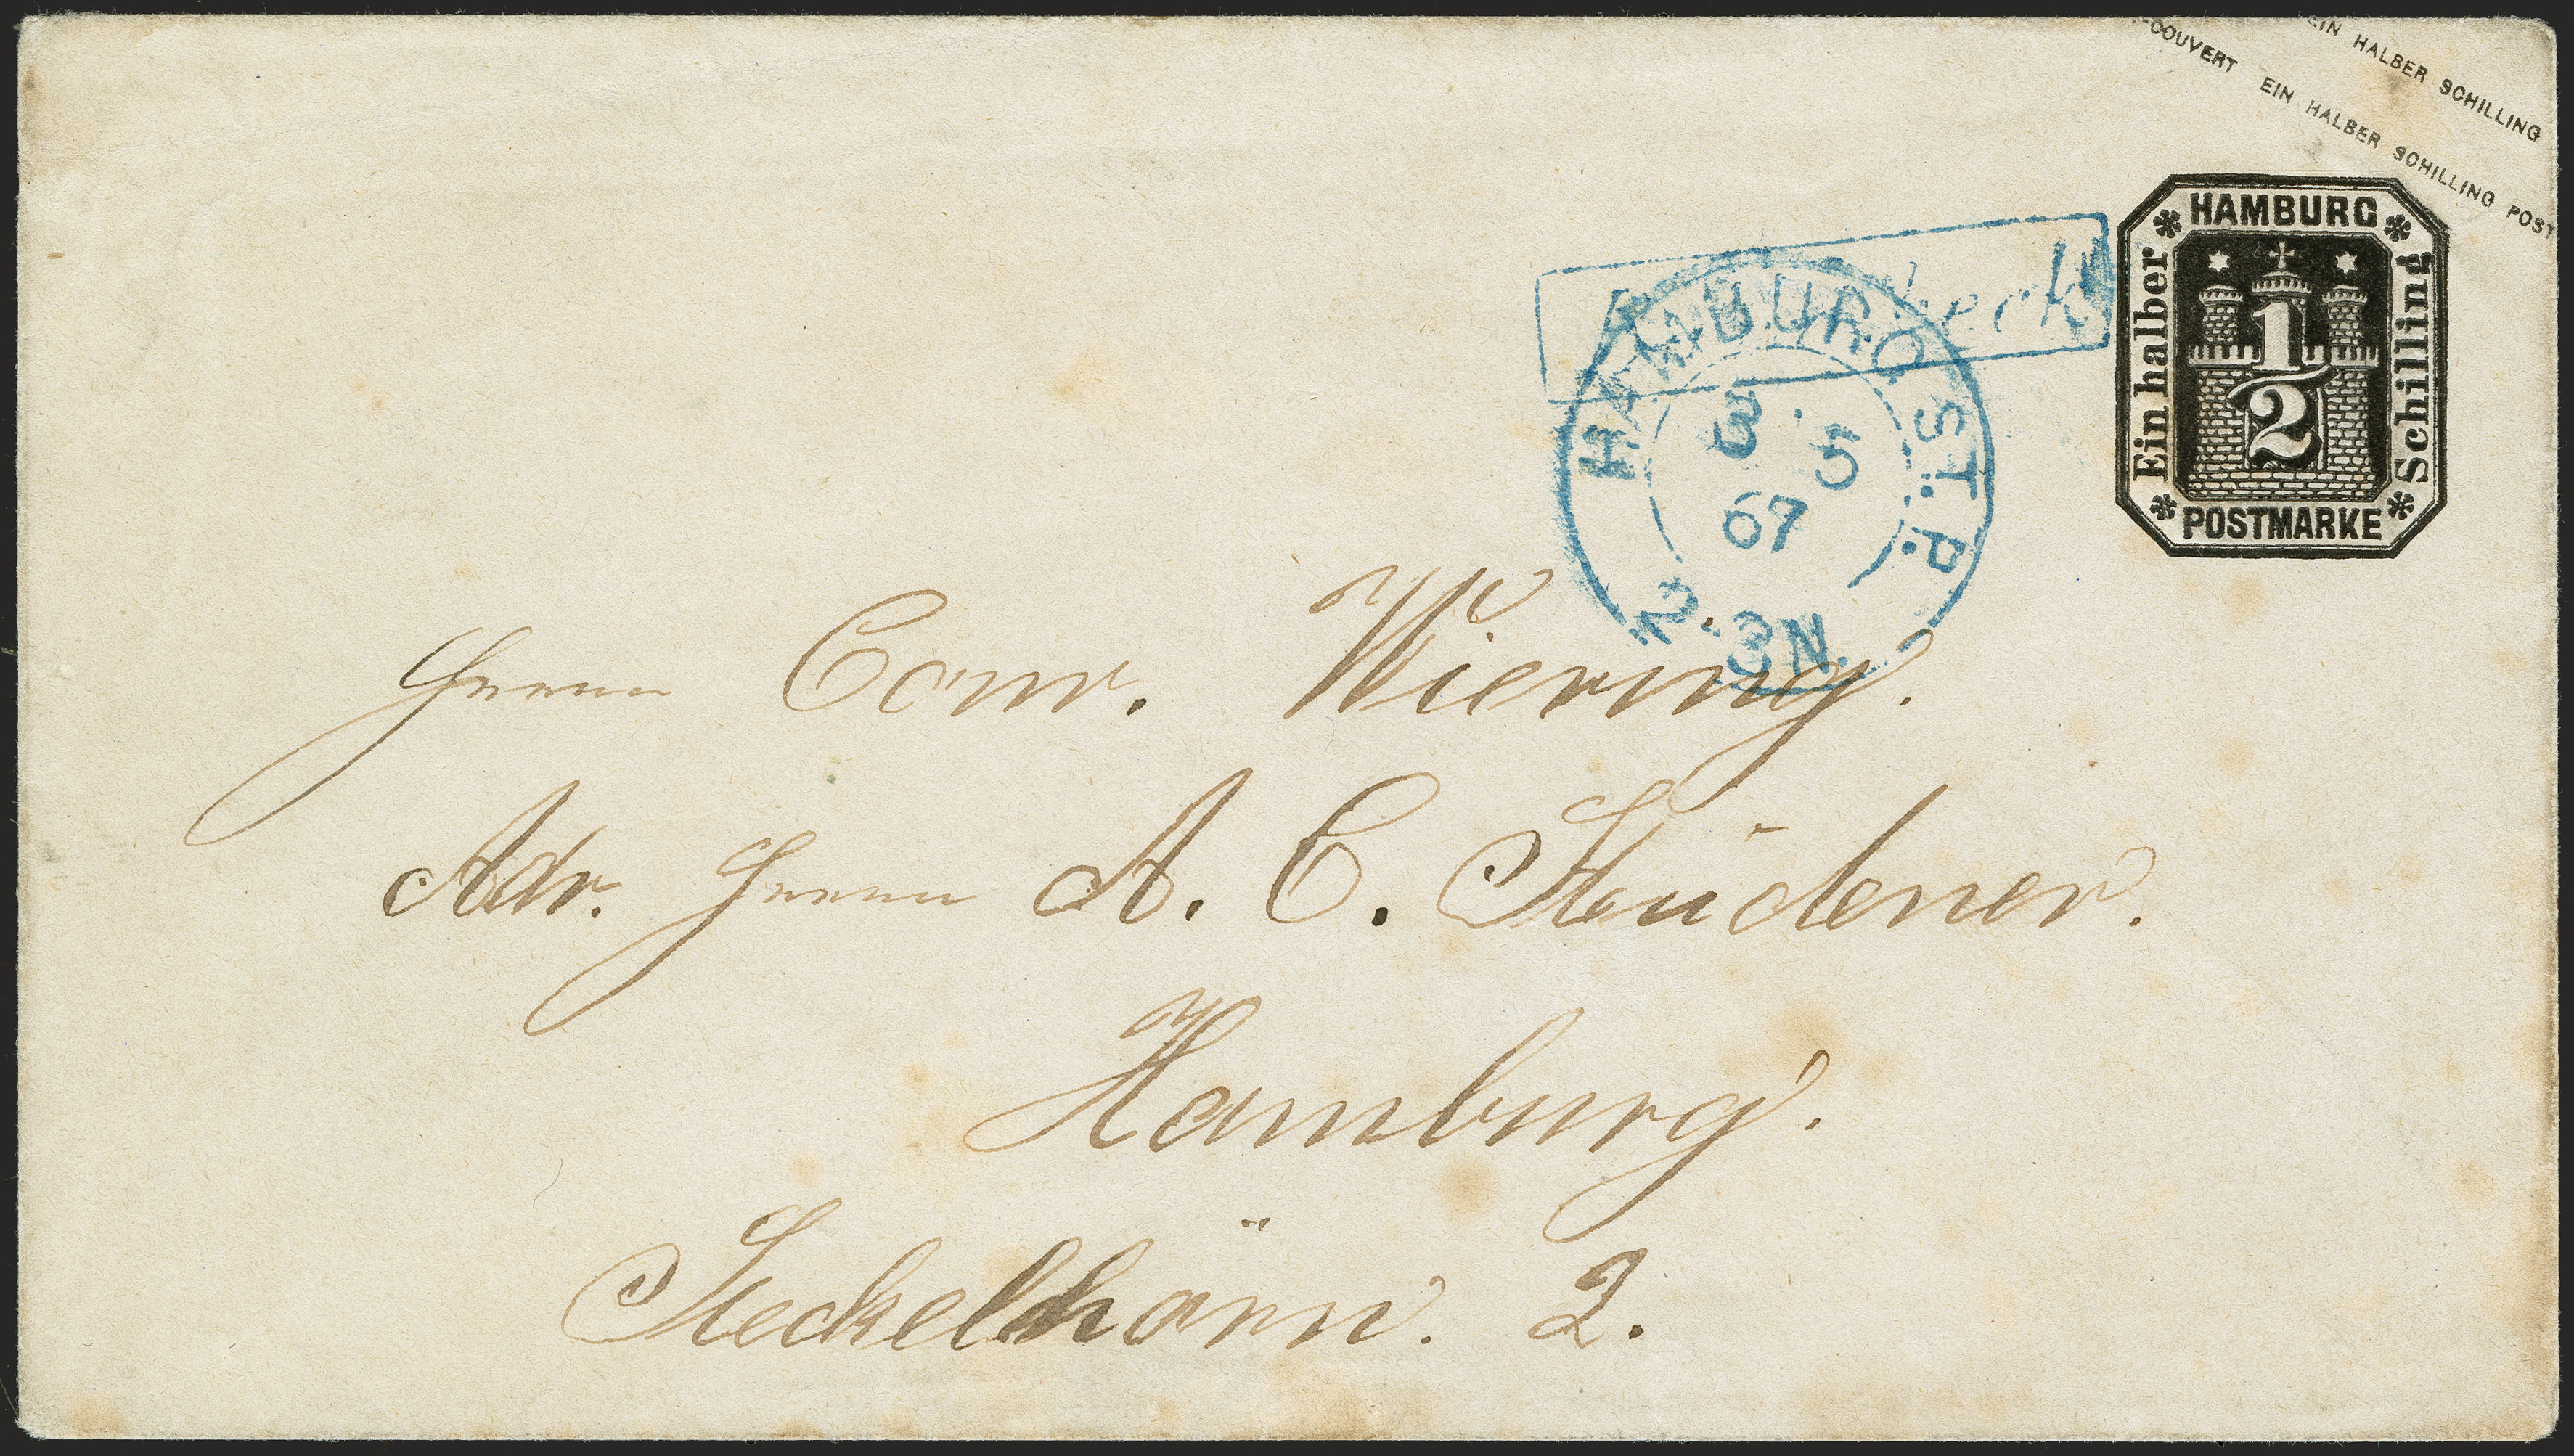 EIN HALBER SCHILLING
-COUVERT EIN HALBER SCHILLING POST
HAMBURG
Ein halber
1/2
Schilling
POSTMARKE
HAMBURG ST. P.
3 5
67
2-3N.
Herrn Conr. Wiering.
Adr. Herrn A. C. Stüdener.
Hamburg.
Steckelhörn. 2.